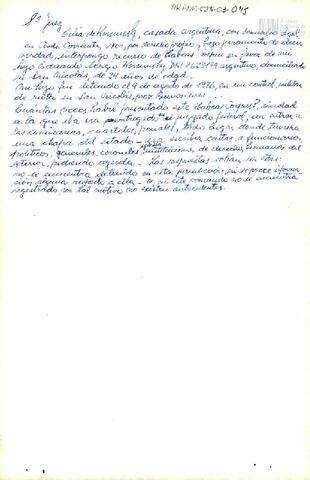 AR-ANM-CJR-C3-045
Sr Juez
Celia de Korsunsky, casada, argentina, con domicilio legal
en Avda Corrientes 1400, por derecho propio, bajo juramento de decir
verdad, interpongo recurso de habeas corpus en favor de mi
hijo Eduardo Sergio Korsunsky DNI argentino, domiciliado
en San Nicolás, de 24 años de edad.
Mi hijo fue detenido el 4 de agosto de 1976, en un control militar
de ruta en San Nicolás, prov Buenos Aires...
Cuántas veces habré presentado este Habeas Corpus?, ciudad
a la que iba era entregado al juzgado federal, era entrar a
las comisarías, cuarteles, penales, todo lugar donde hubiera
una chapa del estado - era escribir cartas a funcionarios,
políticos, generales, coroneles, instituciones de derechos humanos del
exterior, pidiendo ayuda - Las respuestas solían ser éstas:
no se encuentra detenido en esta jurisdicción, ni se posee informa-
ción alguna respecto a ella - o, en este comando no se encuentra
registrado por tal motivo no existen antecedentes.